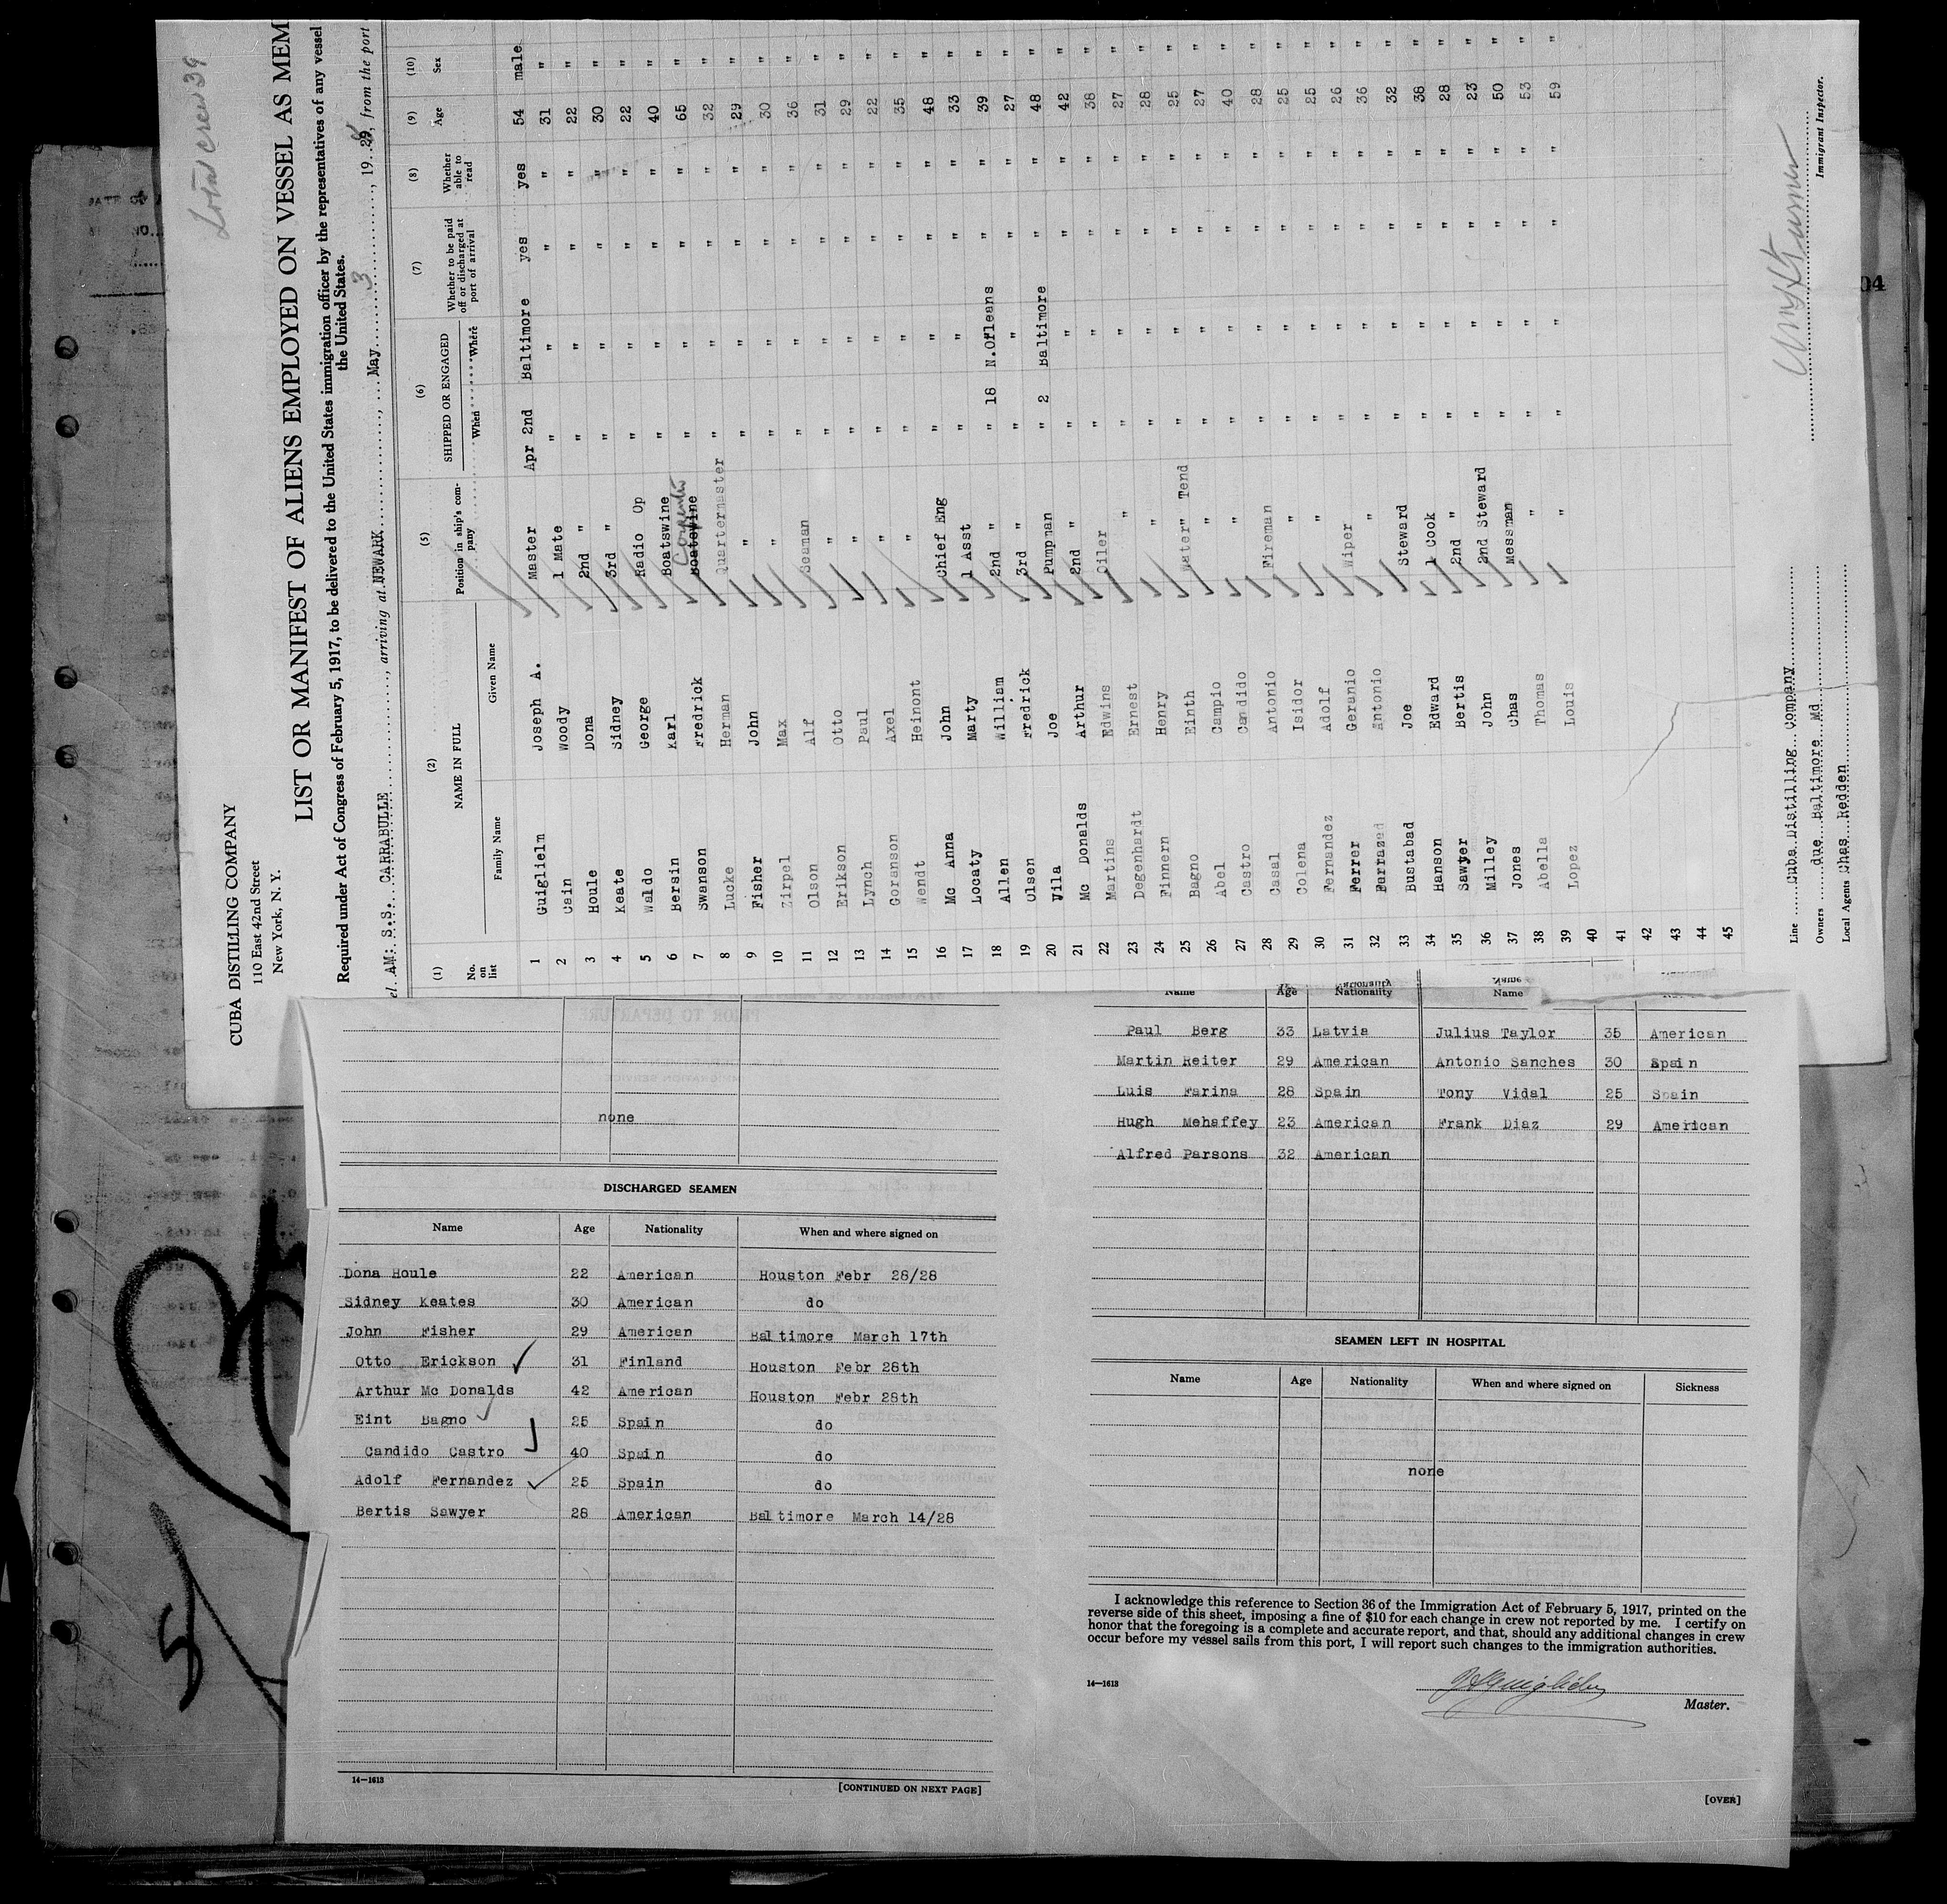 Total crew 39
CUBA DISTILLING COMPANY
110 East 42nd Street
New York, N. Y.
LIST OR MANIFEST OF ALIENS EMPLOYED ON VESSEL AS MEM
Required under Act of Congress of February 5, 1917, to be delivered to the United States immigration officer by the representatives of any vessel
the United States.
el. AM: S.S. CARRABULLE, arriving at NEWARK, May 3, 19 , from the port
(1) (2) (5) (6) (7) (8) (9) (10)
No. on list NAME IN FULL Family Name Given Name Position in ship's company SHIPPED OR ENGAGED When Where Whether to be paid off or discharged at port of arrival Whether able to read Age Sex
1 Guiglielm Joseph A. Master Apr 2nd Baltimore yes yes 54 male
2 Cain Woody 1 Mate " " " " 31 "
3 Houle Dona 2nd " " " " " 22 "
4 Keate Sidney 3rd " " " " " 30 "
5 Waldo George Radio Op " " " " 22 "
6 Bersin Karl Boatswine " " " " 40 "
7 Swanson Fredrick Boatswine Carpenter " " " " 65 "
8 Lucke Herman Quartermaster " " " " 32 "
9 Fisher John " " " " " 29 "
10 Zirpel Max " " " " " 30 "
11 Olson Alf Seaman " " " " 36 "
12 Erikson Otto " " " " " 31 "
13 Lynch Paul " " " " " 29 "
14 Goranson Axel " " " " " 22 "
15 Wendt Heinont " " " " " 35 "
16 Mc Anna John Chief Eng " " " " 48 "
17 Locaty Marty 1 Asst " " " " 33 "
18 Allen William 2nd " " 18 N.Orleans " " 39 "
19 Olsen Fredrick 3rd " " " " " 27 "
20 Vila Joe Pumpman " 2 Baltimore " " 48 "
21 Mc Donalds Arthur 2nd " " " " " 42 "
22 Martins Edwins Oiler " " " " 38 "
23 Degenhardt Ernest " " " " " 27 "
24 Finnern Henry " " " " " 28 "
25 Bagno Einth Water" Tend " " " " 25 "
26 Abel Campio " " " " " 27 "
27 Castro Candido " " " " " 40 "
28 Casal Antonio Fireman " " " " 28 "
29 Colena Isidor " " " " " 25 "
30 Fernandez Adolf " " " " " 25 "
31 Ferrer Geranio Wiper " " " " 26 "
32 Antonio " " " " " 36 "
33 Bustabad Joe Steward " " " " 32 "
34 Hanson Edward 1 Cook " " " " 38 "
35 Sawyer Bertis 2nd " " " " " 28 "
36 Milley John 2nd Steward " " " " 23 "
37 Jones Chas Messman " " " " 50 "
38 Abella Thomas " " " " " 53 "
39 Lopez Louis " " " " " 59 "
40
41
42
43
44
45
Line Cuba Distilling Company
Owners due Baltimore Md
Local Agents Chas. Redden
Immigrant Inspector.
04
none
DISCHARGED SEAMEN
Name Age Nationality When and where signed on
Dona Houle 22 American Houston Febr 28/28
Sidney Keates 30 American do
John Fisher 29 American Baltimore March 17th
Otto Erickson 31 Finland Houston Febr 28th
Arthur Mc Donalds 42 American Houston Febr 28th
Eint Bagno 25 Spain do
Candido Castro 40 Spain do
Adolf Fernandez 25 Spain do
Bertis Sawyer 28 American Baltimore March 14/28
14—1613
[CONTINUED ON NEXT PAGE]
Name Age Nationality Name
Paul Berg 33 Latvia Julius Taylor 35 American
Martin Reiter 29 American Antonio Sanches 30 Spain
Luis Farina 28 Spain Tony Vidal 25 Spain
Hugh Mehaffey 23 American Frank Diaz 29 American
Alfred Parsons 32 American
SEAMEN LEFT IN HOSPITAL
Name Age Nationality When and where signed on Sickness
none
I acknowledge this reference to Section 36 of the Immigration Act of February 5, 1917, printed on the
reverse side of this sheet, imposing a fine of $10 for each change in crew not reported by me. I certify on
honor that the foregoing is a complete and accurate report, and that, should any additional changes in crew
occur before my vessel sails from this port, I will report such changes to the immigration authorities.
14—1613
Master.
[OVER]